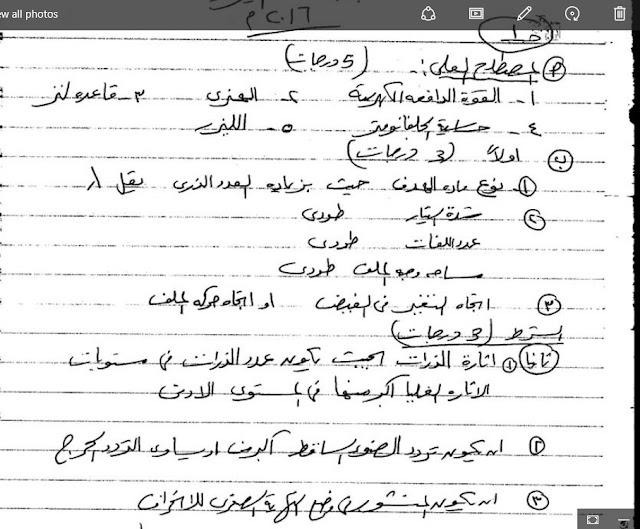 ew all photos
٢٠١٦ م
جـ ١
(P) المصطلح العلمى: (5 درجات)
١- القوة الدافعه الكهربية ٢- الهنرى ٣- قاعده لنز
٤- حساسية الجلفانومتر ٥- الليزر
(ب) اولاً (3 درجات)
① نوع ماده الهدف حيث بزياده العدد الذرى يقل λ
② شدة التيار طردى
عدد اللفات طردى
مساحه وجه الملف طردى
③ اتجاه التغير فى الفيض او اتجاه حركه الملف
الشرط (3 درجات)
ثانيا ① اثارة الذرات بحيث يكون عدد الذرات فى مستويات
الاثاره العليا اكبر منها فى المستوى الادنى
② ان يكون تردد الضوء الساقط اكبر من او يساوى التردد الحرج
③ ان يكون المنشور فى وضع النهاية الصغرى للانحراف